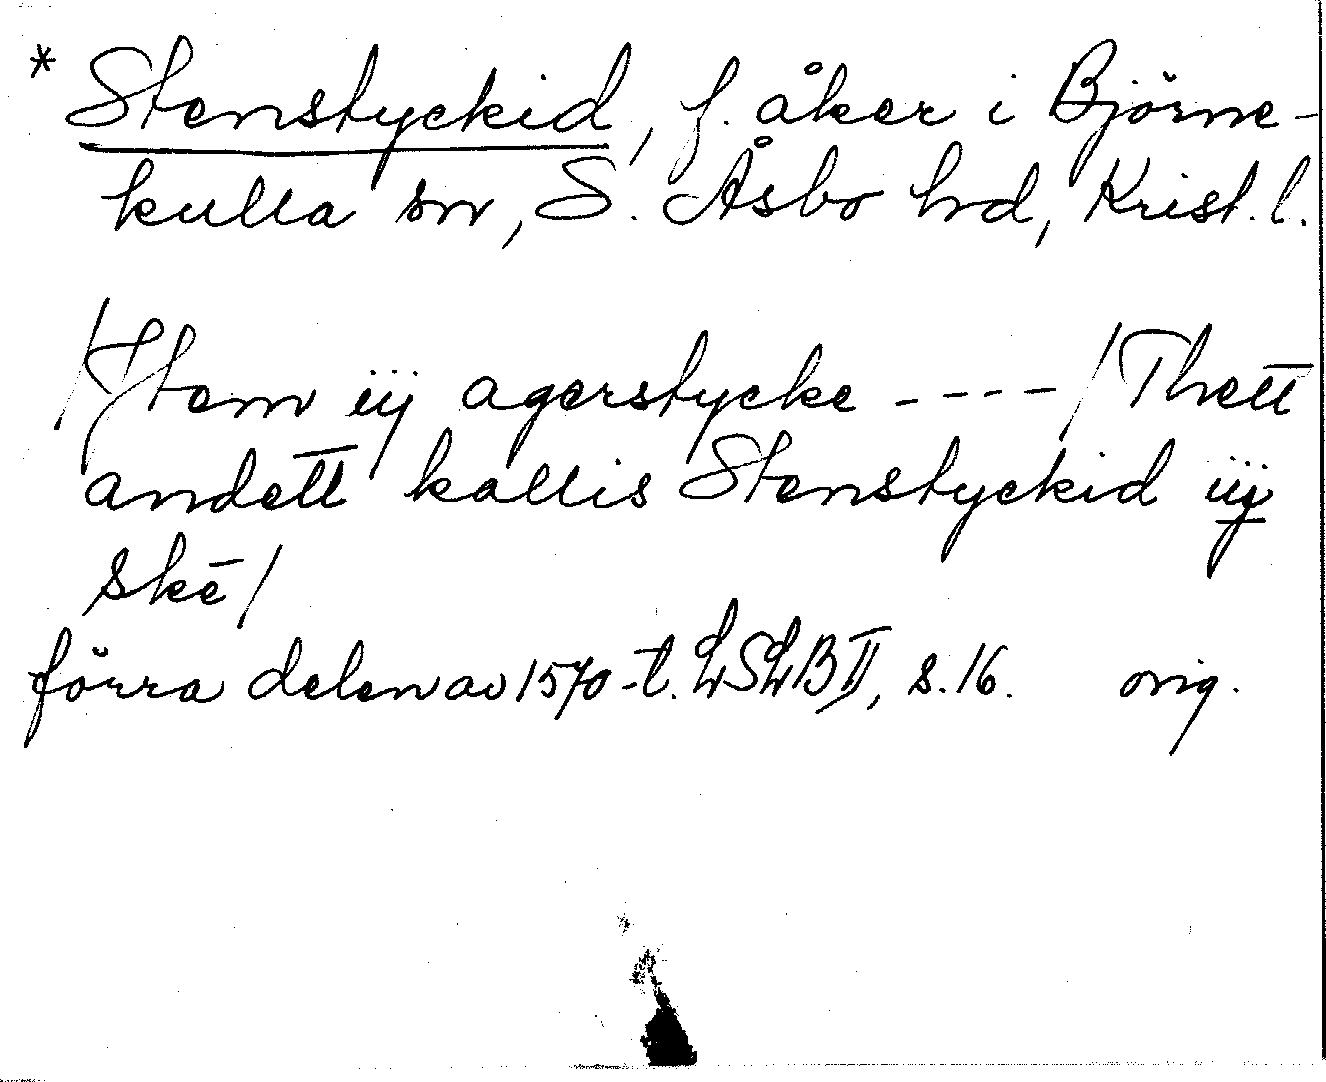 * Stenstyckid, f. åker i Björne-
kulla sn, S. Åsbo hd, Krist. l.
/Jtem iij agerstycke ----/Thett
andett kallis Stenstyckid iij
skē/
förra delen av 1570-t. LSLB II, s. 16. orig.